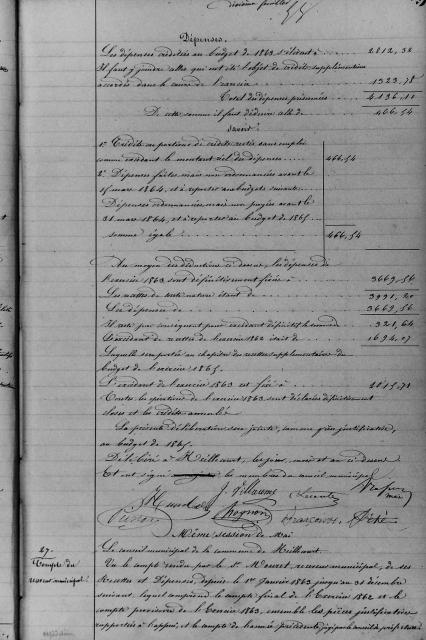 Dépenses.
Les dépenses créditées au budget de 1863 s'élèvent à 2812,32
Il faut y joindre celles qui ont été l'objet de crédits supplémentaires
accordés dans le cours de l'exercice 1323,78
Total des dépenses présumées 4136,10
De cette somme il faut déduire celle de 466,54
Savoir:
1º Crédits ou portions de crédits restés sans emploi
comme excédant le montant réel des dépenses 466,54
2º Dépenses faites mais non ordonnancées avant le
15 mars 1864, et à reporter aux budgets suivants
Dépenses ordonnancées mais non payées avant le
31 mars 1864, et à reporter au budget de 1865
Somme égale 466,54
Au moyen des déductions ci-dessus, les dépenses de
l'exercice 1863 sont définitivement fixées à 3669,56
Les recettes de toute nature étant de 3991,20
Les dépenses de 3669,56
Il reste par conséquent pour excédant définitif la somme de 321,64
L'excédant de recettes de l'exercice 1862 était de 1694,07
Laquelle sera portée au chapitre des recettes supplémentaires du
budget de l'exercice 1865.
L'excédent de l'exercice 1863 est fixé à 2015,71
Toutes les opérations de l'exercice 1863 sont déclarées définitivement
closes et les crédits annulés.
La présente délibération sera jointe, comme pièce justificative,
au budget de 1865.
Délibéré à Meillant, les jour, mois et an ci-dessus
Et ont signé les membres du conseil municipal
J. Villaume
maire
Même session de Mai
27.
Compte du
receveur municipal.
Le conseil municipal de la commune de Meillant.
Vu le compte rendu par le Sr. receveur municipal, de ses
Recettes et Dépenses, depuis le 1er Janvier 1863 jusqu'au 31 décembre
suivant, lequel comprend le compte final de l'Exercice 1862 et le
compte provisoire de l'Exercice 1863, ensemble les pièces justificatives
rapportées à l'appui, et le compte de l'année précédente